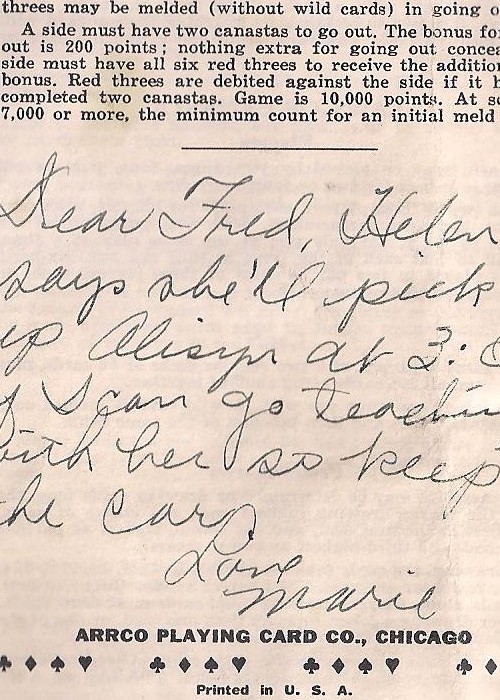 threes may be melded (without wild cards) in going o
A side must have two canastas to go out. The bonus for
out is 200 points; nothing extra for going out concea
side must have all six red threes to receive the addition
bonus. Red threes are debited against the side if it h
completed two canastas. Game is 10,000 points. At sc
7,000 or more, the minimum count for an initial meld
Dear Fred, Helen
says she'll pick
up Alisyn at 3:0
I can go teachin
with her so keep
the car
Love
Marie
ARRCO PLAYING CARD CO., CHICAGO
♣ ♦ ♠ ♥ ♣ ♦ ♠ ♥ ♣ ♦ ♠ ♥ ♣ ♦
Printed in U. S. A.